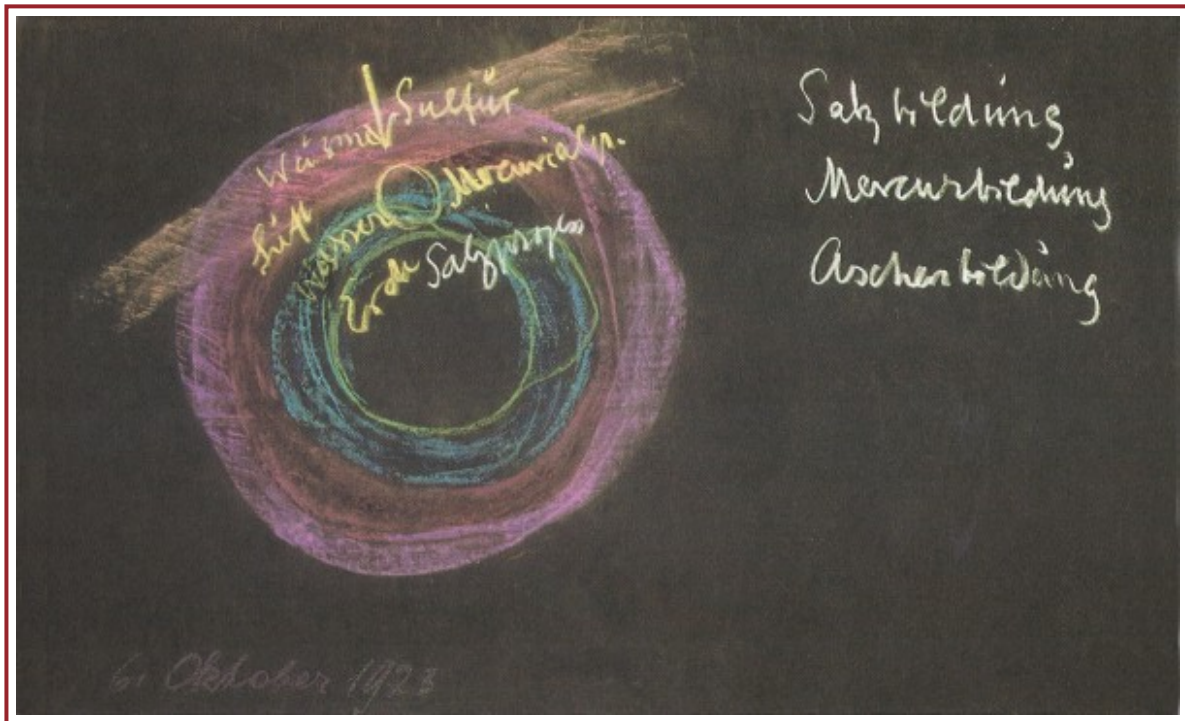 Sulfür
Wärme
Mercurialpr.
Lüft
Wasser
Erde Salzprozess
Salzbildüng
Mercurbildüng
Aschenbildüng
6. Oktober 1923